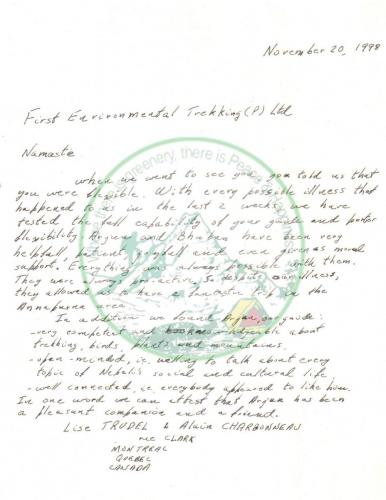 November 20, 1998
First Environmental Trekking (P) Ltd
Namaste
When we went to see you, you told us that
you were flexible. With every possible illness that
happened to us in the last 2 weeks, we have
tested the full capability of your guide and porter
flexibility. Arjun and have been very
helpfull, patient, joyfull and even given us moral
support. Everything was always possible with them.
They were very pro-active. So despite our illness,
they allowed us to have a fantastic trip in the
Annapurna area.
In addition we found Arjun, our guide:
- very competent and knowledgeable about
trekking, birds, plants and mountains.
- open-minded, i.e. willing to talk about every
topic of Nepali's social and cultural life,
- well connected, i.e. everybody appeared to like him.
In one word we can attest that Arjun has been
a pleasant companion and a friend.
Lise TRUDEL & Alain CHARBONNEAU
CLARK
MONTREAL
QUEBEC
CANADA
greenery, there is Peace